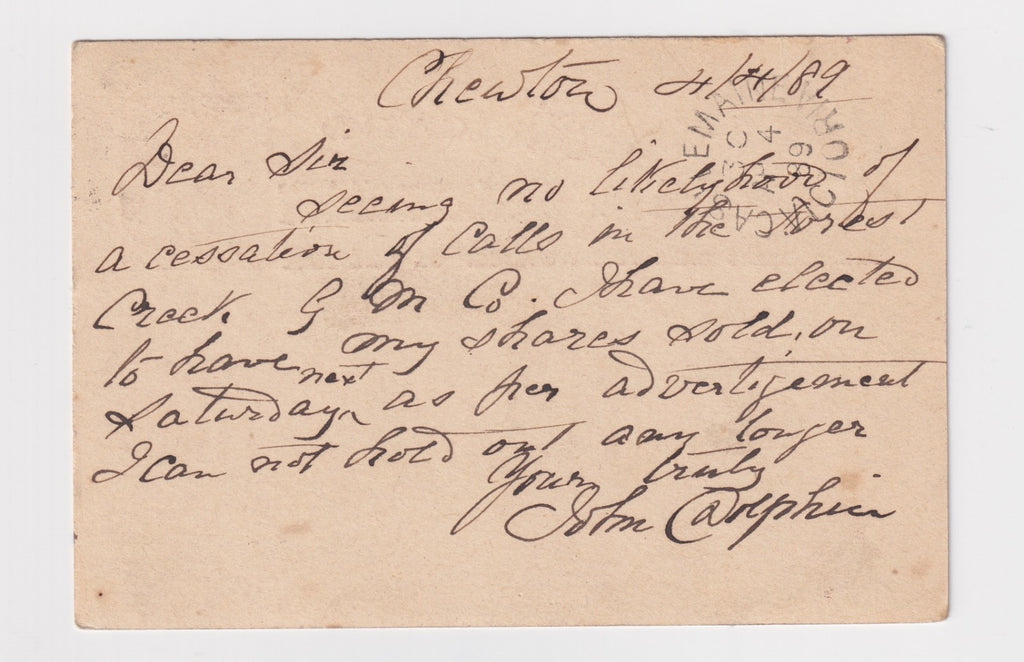 Chewton 4/4/89
Dear Sir
seeing no likelyhood of
a cessation of Calls in the Forest
Creek G M Co. I have elected
to have my shares sold, on
Saturday next as per advertizement
I can not hold out any longer
Yours truly
John Dolphin
CASTLEMAINE VICTORIA
3C
AP 4
89